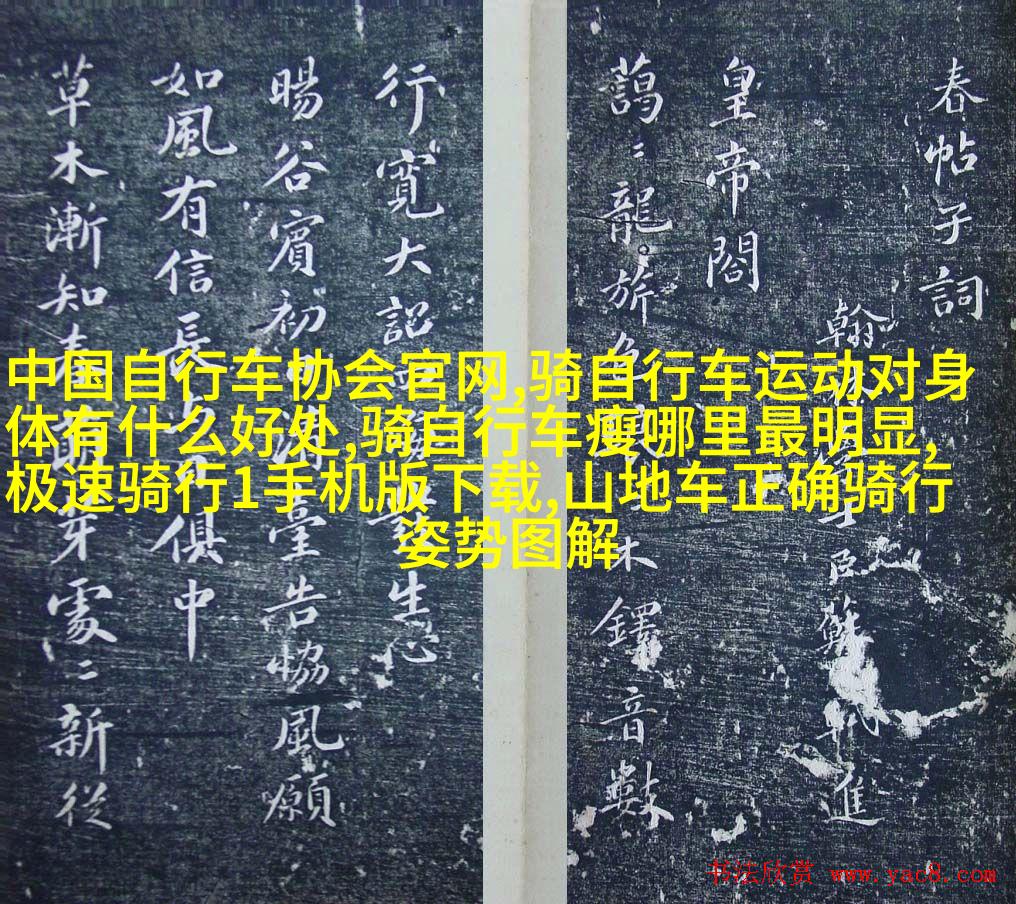 中国自行车协会官网,骑自行车运动对身
体有什么好处,骑自行车瘦哪里最明显,
极速骑行1手机版下载,山地车正确骑行
姿势图解
春帖子詞
翰林學士臣蘇軾進
皇帝閤
藹〻龍旂色木鐸音數
行寬大詔生心
暘谷賓初日清臺告協風願
如風有信長與日俱中
草木漸知春萌芽處〻新從
书法欣赏 www.yac8.com